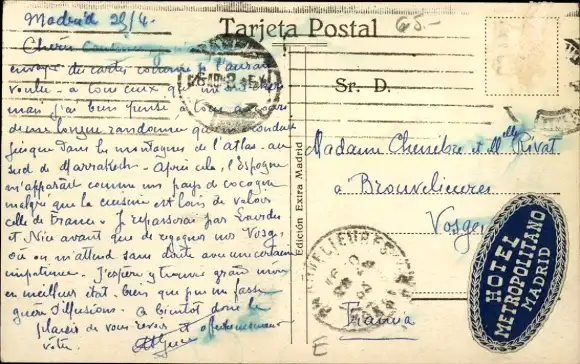 Madrid 28/4.
65.-
Tarjeta Postal
Chère
envoyé de cartes comme je l'aurais
voulu - à tous ceux que
mais j'ai bien pensé à tous
d'une longue randonnée qui m'a conduit
jusque dans les montagnes de l'atlas - au
sud de Marrakech - Après cela, l'Espagne
m'apparaît comme un pays de cocagne
malgré que la cuisine est loin de valoir
celle de France - Je repasserai par Lourdes
et Nice avant que de regagner nos Vosges,
où on m'attend sans doute avec une certaine
impatience. J'espère y trouver grand mère
en meilleur état - bien que je ne fasse
guère d'illusions. A bientôt donc le
plaisir de vous revoir et affectueusement
vôtre.
Edición Exira Madrid
Sr. D.
Madame Chenèbre et Mlle Rivat
à Brouvelieures
Vosges
France
BROUVELIEURES
E
HOTEL
METROPOLITANO
MADRID